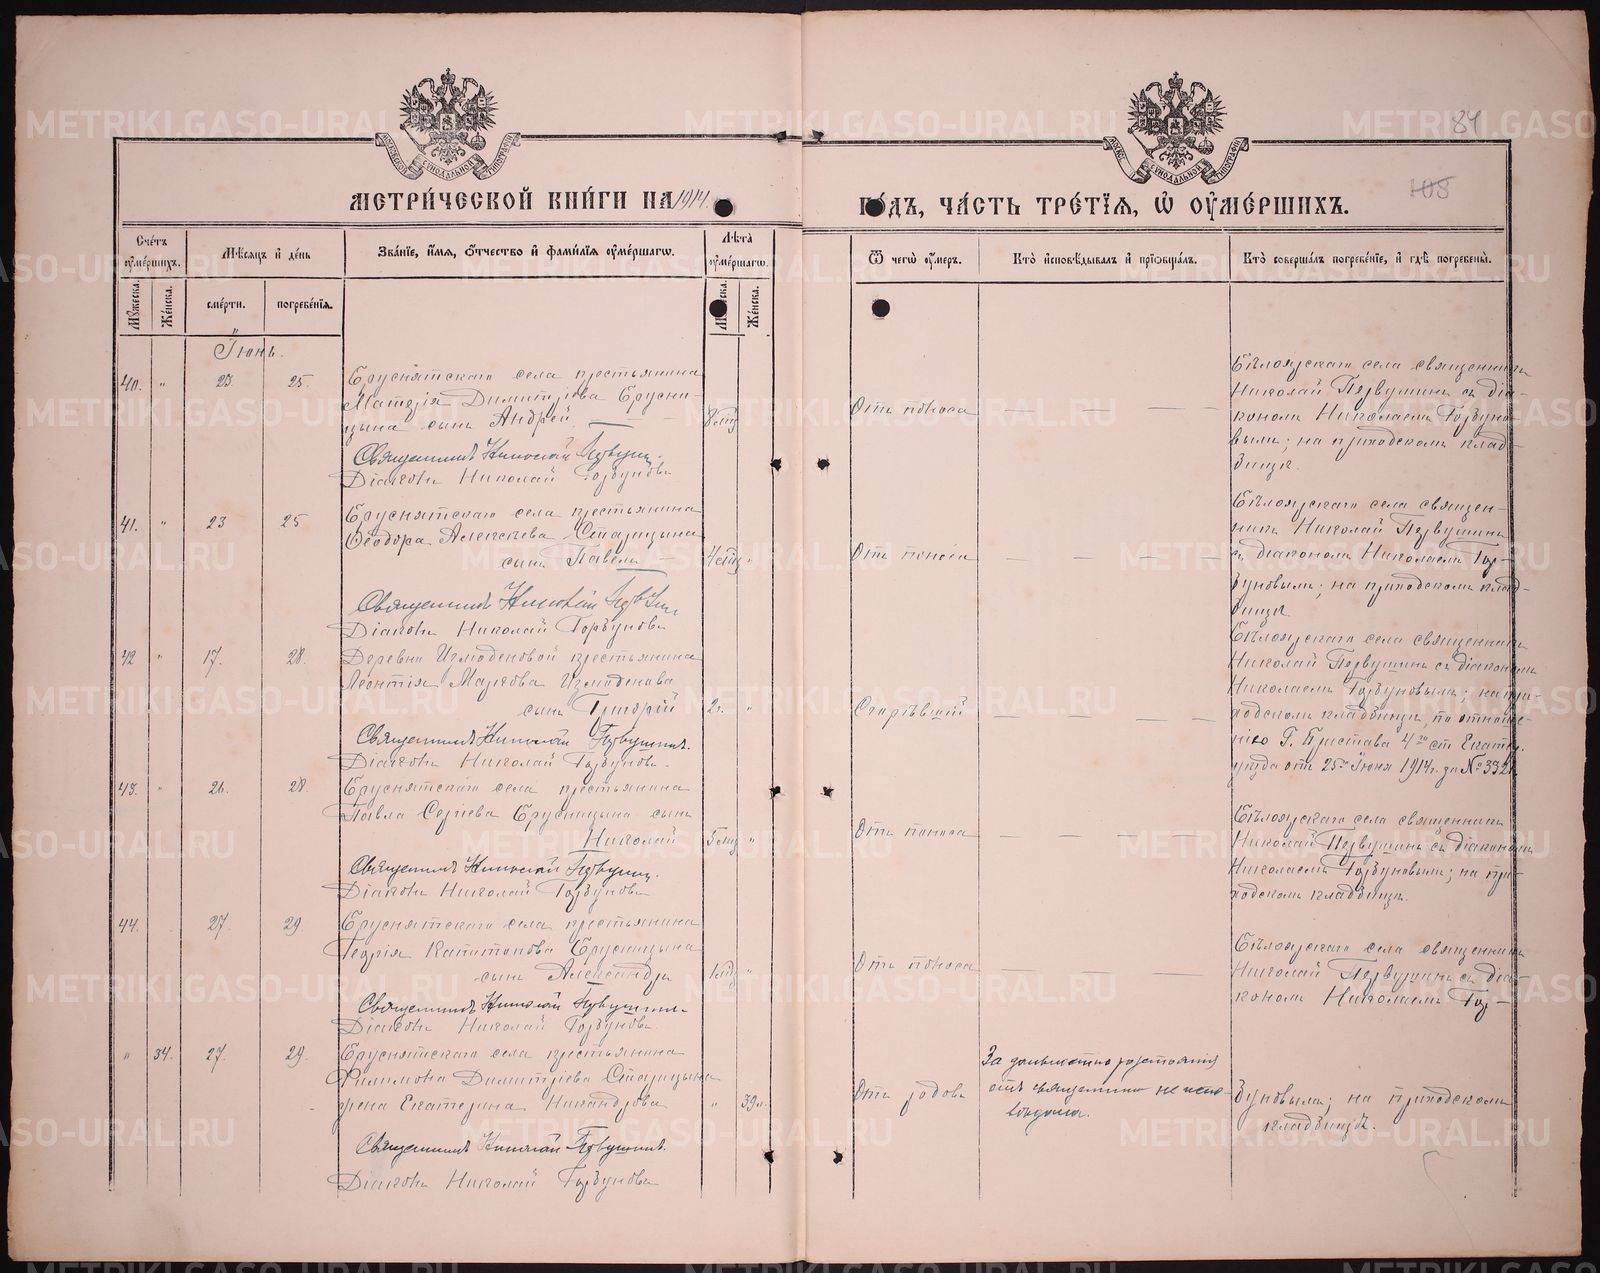 84
108
МЕТРИЧЕСКОЙ КНИГИ НА 1914.
ГОДЪ, ЧАСТЬ ТРЕТІЯ, Ѡ ОУМЕРШИХЪ.
Счетъ оумершихъ.
Мѣсяцъ и день
Званіе, имя, отчество и фамилія оумершагѡ.
Лѣта оумершагѡ.
Ѿ чегѡ оумеръ.
Кто исповѣдывалъ и пріобщалъ.
Кто совершалъ погребеніе, и гдѣ погребены.
Мужеска.
Женска.
смерти.
погребенія.
Женска.
Іюнь.
40. " 23. 25.
Бруснятскаго села крестьянина
Димитріева Брусни-
цына сынъ Андрей
Священникъ Николай Первушинъ.
Діаконъ Николай Горбуновъ
Отъ поноса
Бѣлоярскаго села священникъ
Николай Первушинъ съ діа-
кономъ Николаемъ Горбуно-
вымъ; на приходскомъ клад-
бищѣ.
41. " 23 25
Бруснятскаго села крестьянина
Ѳеодора Алексѣева Старицына
сынъ Павелъ
Священникъ Николай Первушинъ
Діаконъ Николай Горбуновъ
Отъ поноса
Бѣлоярскаго села священ-
никъ Николай Первушинъ
съ діакономъ Николаемъ Гор-
буновымъ; на приходскомъ клад-
бищѣ
42 " 17. 28.
Деревни Измоденовой крестьянина
Леонтія Маркова Измоденова
сынъ Григорій 2 г. "
Священникъ Николай Первушинъ.
Діаконъ Николай Горбуновъ.
Сгорѣвшій
Бѣлоярскаго села священникъ
Николай Первушинъ съ діакономъ
Николаемъ Горбуновымъ; на при-
ходскомъ кладбищѣ, по отноше-
нію Г. Пристава 4го ст. Екатер.
уѣзда отъ 25го Іюня 1914 г. за №
43. " 26. 28.
Бруснятскаго села крестьянина
Павла Сергіева Брусницына сынъ
Николай
Священникъ Николай Первушинъ.
Діаконъ Николай Горбуновъ
Отъ поноса
Бѣлоярскаго села священникъ
Николай Первушинъ съ діакономъ
Николаемъ Горбуновымъ; на при-
ходскомъ кладбищѣ.
44. 27. 29.
Бруснятскаго села крестьянина
Георгія Капитонова Брусницына
сынъ Александръ
Священникъ Николай Первушинъ.
Діаконъ Николай Горбуновъ.
Отъ поноса
Бѣлоярскаго села священникъ
Николай Первушинъ съ діа-
кономъ Николаемъ Гор-
" 34. 27. 29.
Бруснятскаго села крестьянина
Филимона Димитріева Старицына
жена Екатерина Никандрова " 39 л.
Священникъ Николай Первушинъ.
Діаконъ Николай Горбуновъ
Отъ родовъ
За дальностію разстоянія
отъ священника не испо-
вѣдана.
буновымъ; на приходскомъ
кладбищѣ.
METRIKI.GASO-URAL.RU